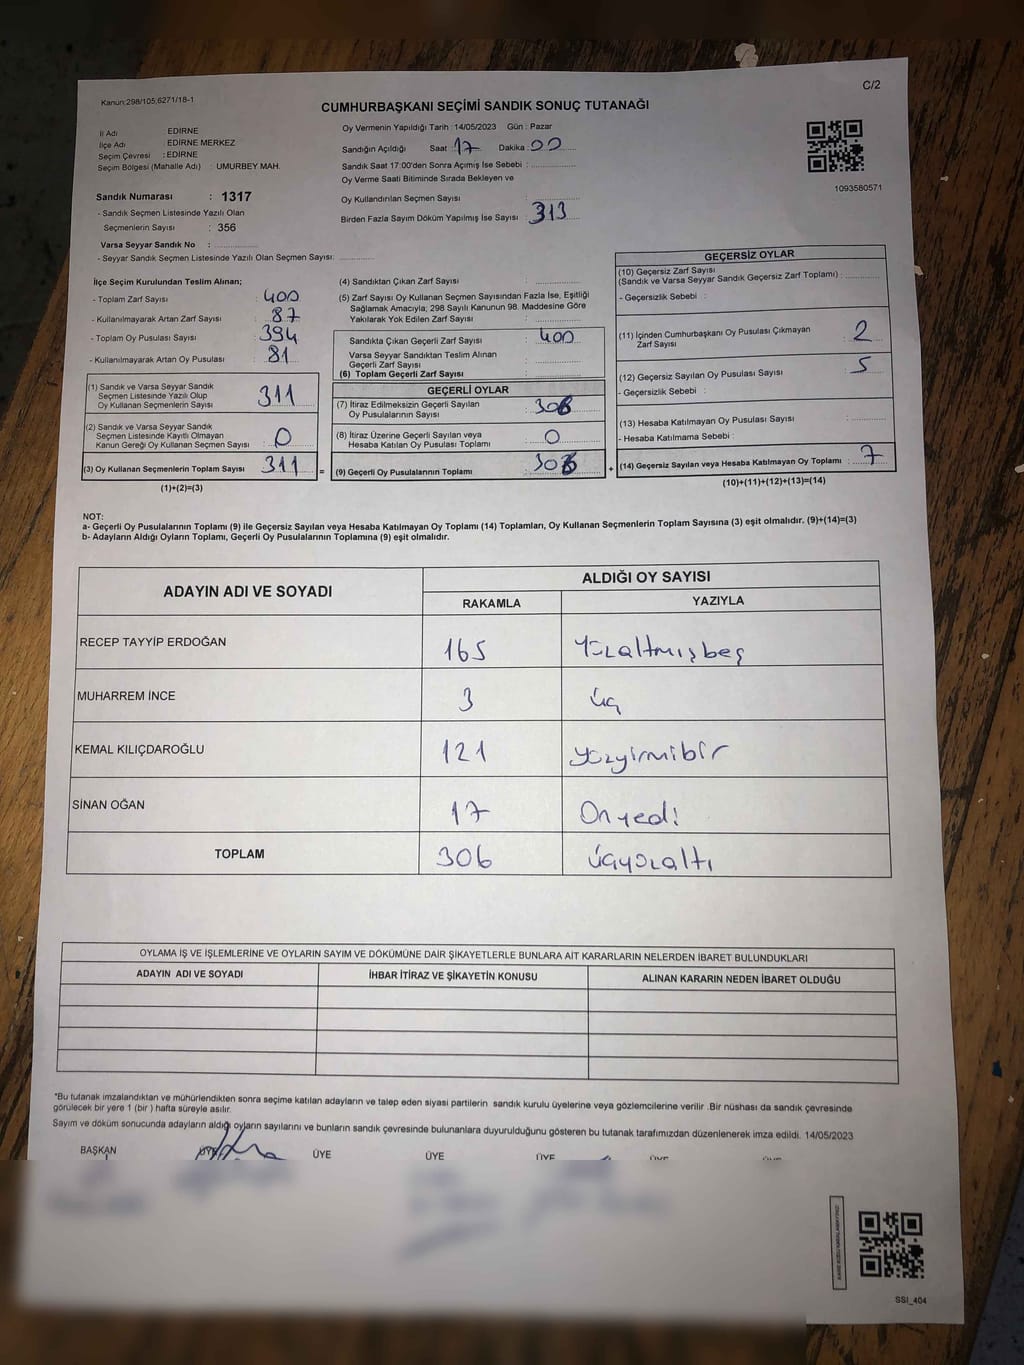 Kanun:298/105,6271/18-1
C/2
CUMHURBAŞKANI SEÇİMİ SANDIK SONUÇ TUTANAĞI
İl Adı EDİRNE
İlçe Adı : EDİRNE MERKEZ
Seçim Çevresi : EDİRNE
Seçim Bölgesi (Mahalle Adı) : UMURBEY MAH.
Sandık Numarası : 1317
- Sandık Seçmen Listesinde Yazılı Olan
Seçmenlerin Sayısı : 356
Varsa Seyyar Sandık No :
- Seyyar Sandık Seçmen Listesinde Yazılı Olan Seçmen Sayısı:
Oy Vermenin Yapıldığı Tarih : 14/05/2023 Gün : Pazar
Sandığın Açıldığı Saat : 17 Dakika : 00
Sandık Saat 17:00'den Sonra Açımış İse Sebebi :
Oy Verme Saati Bitiminde Sırada Bekleyen ve
Oy Kullandırılan Seçmen Sayısı
Birden Fazla Sayım Döküm Yapılmış İse Sayısı : 313
1093580571
İlçe Seçim Kurulundan Teslim Alınan;
- Toplam Zarf Sayısı : 400
- Kullanılmayarak Artan Zarf Sayısı : 87
- Toplam Oy Pusulası Sayısı : 394
- Kullanılmayarak Artan Oy Pusulası : 81
(1) Sandık ve Varsa Seyyar Sandık
Seçmen Listesinde Yazılı Olup
Oy Kullanan Seçmenlerin Sayısı : 311
(2) Sandık ve Varsa Seyyar Sandık
Seçmen Listesinde Kayıtlı Olmayan
Kanun Gereği Oy Kullanan Seçmen Sayısı : 0
(3) Oy Kullanan Seçmenlerin Toplam Sayısı : 311 =
(1)+(2)=(3)
(4) Sandıktan Çıkan Zarf Sayısı :
(5) Zarf Sayısı Oy Kullanan Seçmen Sayısından Fazla İse, Eşitliği
Sağlamak Amacıyla; 298 Sayılı Kanunun 98. Maddesine Göre
Yakılarak Yok Edilen Zarf Sayısı :
Sandıkta Çıkan Geçerli Zarf Sayısı : 400
Varsa Seyyar Sandıktan Teslim Alınan
Geçerli Zarf Sayısı
(6) Toplam Geçerli Zarf Sayısı :
GEÇERLİ OYLAR
(7) İtiraz Edilmeksizin Geçerli Sayılan
Oy Pusulalarının Sayısı : 306
(8) İtiraz Üzerine Geçerli Sayılan veya
Hesaba Katılan Oy Pusulası Toplamı : 0
(9) Geçerli Oy Pusulalarının Toplamı : 306 +
GEÇERSİZ OYLAR
(10) Geçersiz Zarf Sayısı
(Sandık ve Varsa Seyyar Sandık Geçersiz Zarf Toplamı) :
- Geçersizlik Sebebi :
(11) İçinden Cumhurbaşkanı Oy Pusulası Çıkmayan
Zarf Sayısı : 2
(12) Geçersiz Sayılan Oy Pusulası Sayısı : 5
- Geçersizlik Sebebi :
(13) Hesaba Katılmayan Oy Pusulası Sayısı :
- Hesaba Katılmama Sebebi :
(14) Geçersiz Sayılan veya Hesaba Katılmayan Oy Toplamı : 7
(10)+(11)+(12)+(13)=(14)
NOT:
a- Geçerli Oy Pusulalarının Toplamı (9) ile Geçersiz Sayılan veya Hesaba Katılmayan Oy Toplamı (14) Toplamları, Oy Kullanan Seçmenlerin Toplam Sayısına (3) eşit olmalıdır. (9)+(14)=(3)
b- Adayların Aldığı Oyların Toplamı, Geçerli Oy Pusulalarının Toplamına (9) eşit olmalıdır.
ADAYIN ADI VE SOYADI
ALDIĞI OY SAYISI
RAKAMLA YAZIYLA
RECEP TAYYİP ERDOĞAN 165 Yüzaltmışbeş
MUHARREM İNCE 3 üç
KEMAL KILIÇDAROĞLU 121 yüzyirmibir
SİNAN OĞAN 17 Onyedi
TOPLAM 306 üçyüzaltı
OYLAMA İŞ VE İŞLEMLERİNE VE OYLARIN SAYIM VE DÖKÜMÜNE DAİR ŞİKAYETLERLE BUNLARA AİT KARARLARIN NELERDEN İBARET BULUNDUKLARI
ADAYIN ADI VE SOYADI İHBAR İTİRAZ VE ŞİKAYETİN KONUSU ALINAN KARARIN NEDEN İBARET OLDUĞU
*Bu tutanak imzalandıktan ve mühürlendikten sonra seçime katılan adayların ve talep eden siyasi partilerin sandık kurulu üyelerine veya gözlemcilerine verilir .Bir nüshası da sandık çevresinde
görülecek bir yere 1 (bir ) hafta süreyle asılır.
Sayım ve döküm sonucunda adayların aldığı oyların sayılarını ve bunların sandık çevresinde bulunanlara duyurulduğunu gösteren bu tutanak tarafımızdan düzenlenerek imza edildi. 14/05/2023
BAŞKAN ÜYE ÜYE ÜYE ÜYE ÜYE ÜYE
SSI_404